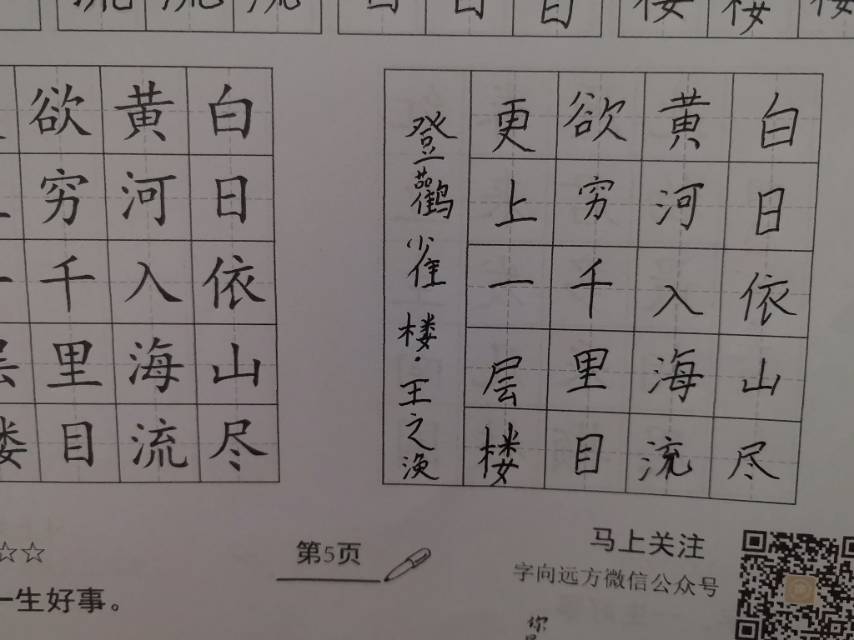 白日依山尽
黄河入海流
欲穷千里目
白日依山尽
黄河入海流
欲穷千里目
更上一层楼
登鹳雀楼·王之涣
☆☆
一生好事。
第5页
马上关注
字向远方微信公众号